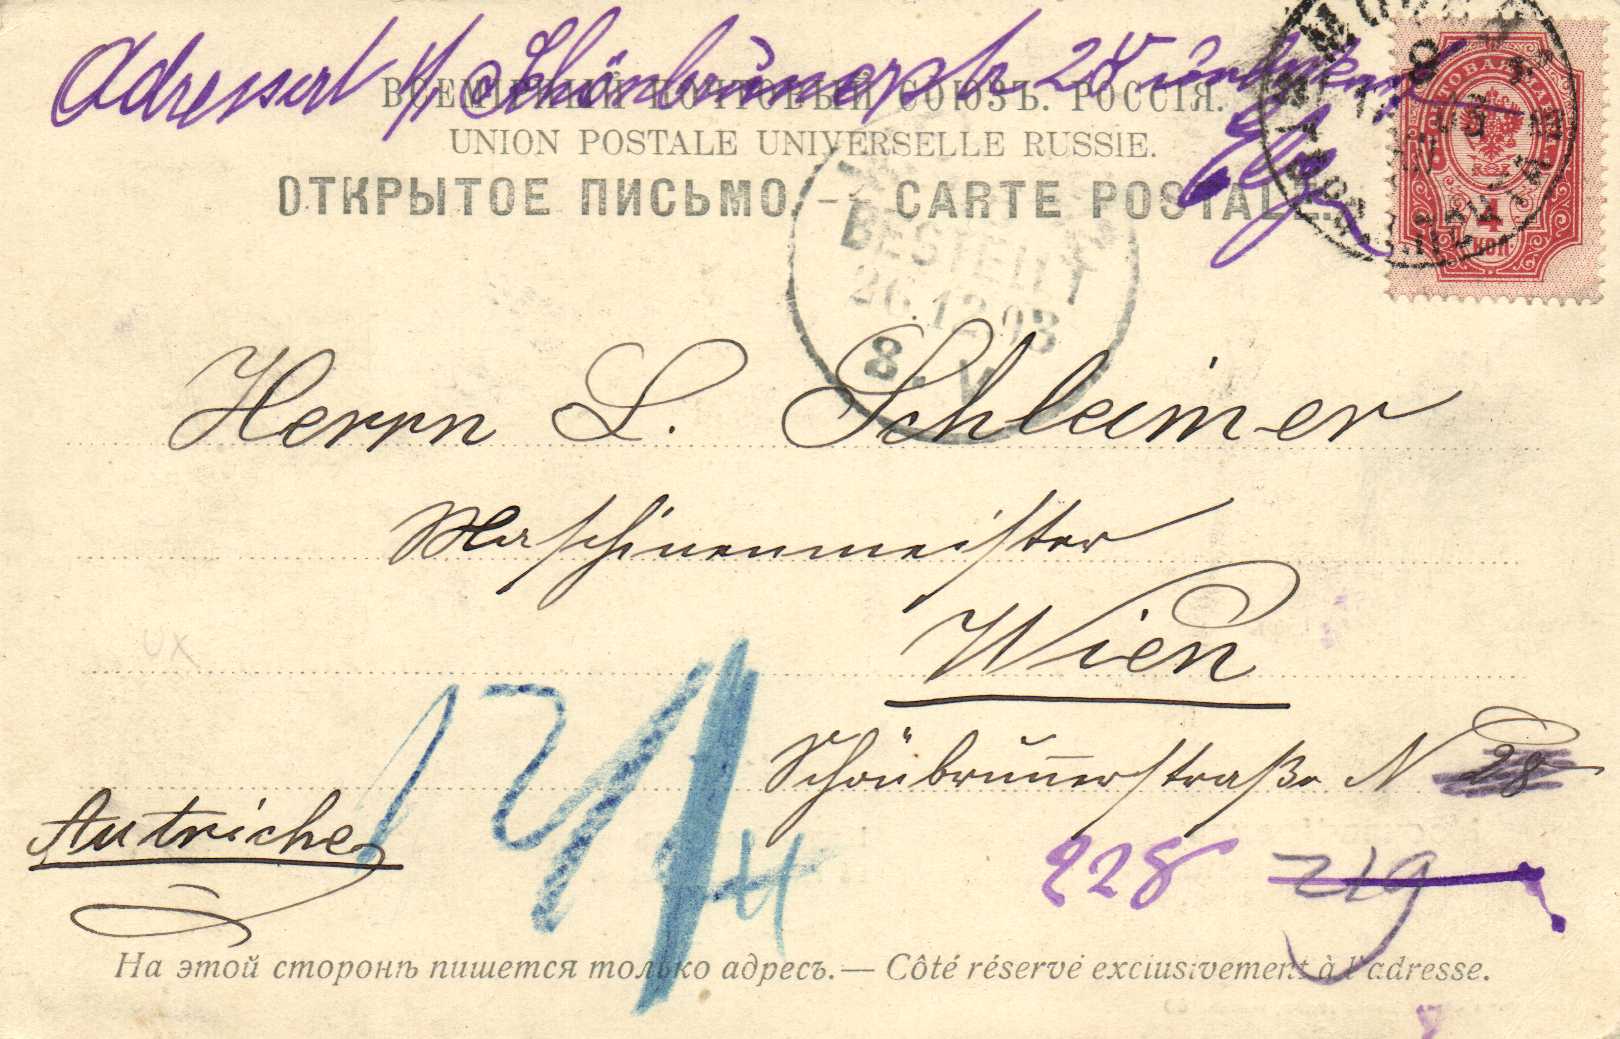 Adressat Schönbrunerstr 28 unbekannt
ВСЕМІРНЫЙ ПОЧТОВЫЙ СОЮЗЪ. РОССІЯ.
UNION POSTALE UNIVERSELLE RUSSIE.
ОТКРЫТОЕ ПИСЬМО. — CARTE POSTALE.
BESTELLT
26.12.03
8. V
4
КОП
Herrn L. Schleimer
Maschinenmeister
Wien
Schönbrunnerstraße N 28
Autriche
12/4
228 219
На этой сторонѣ пишется только адресъ.— Côté réservé exclusivement à l'adresse.